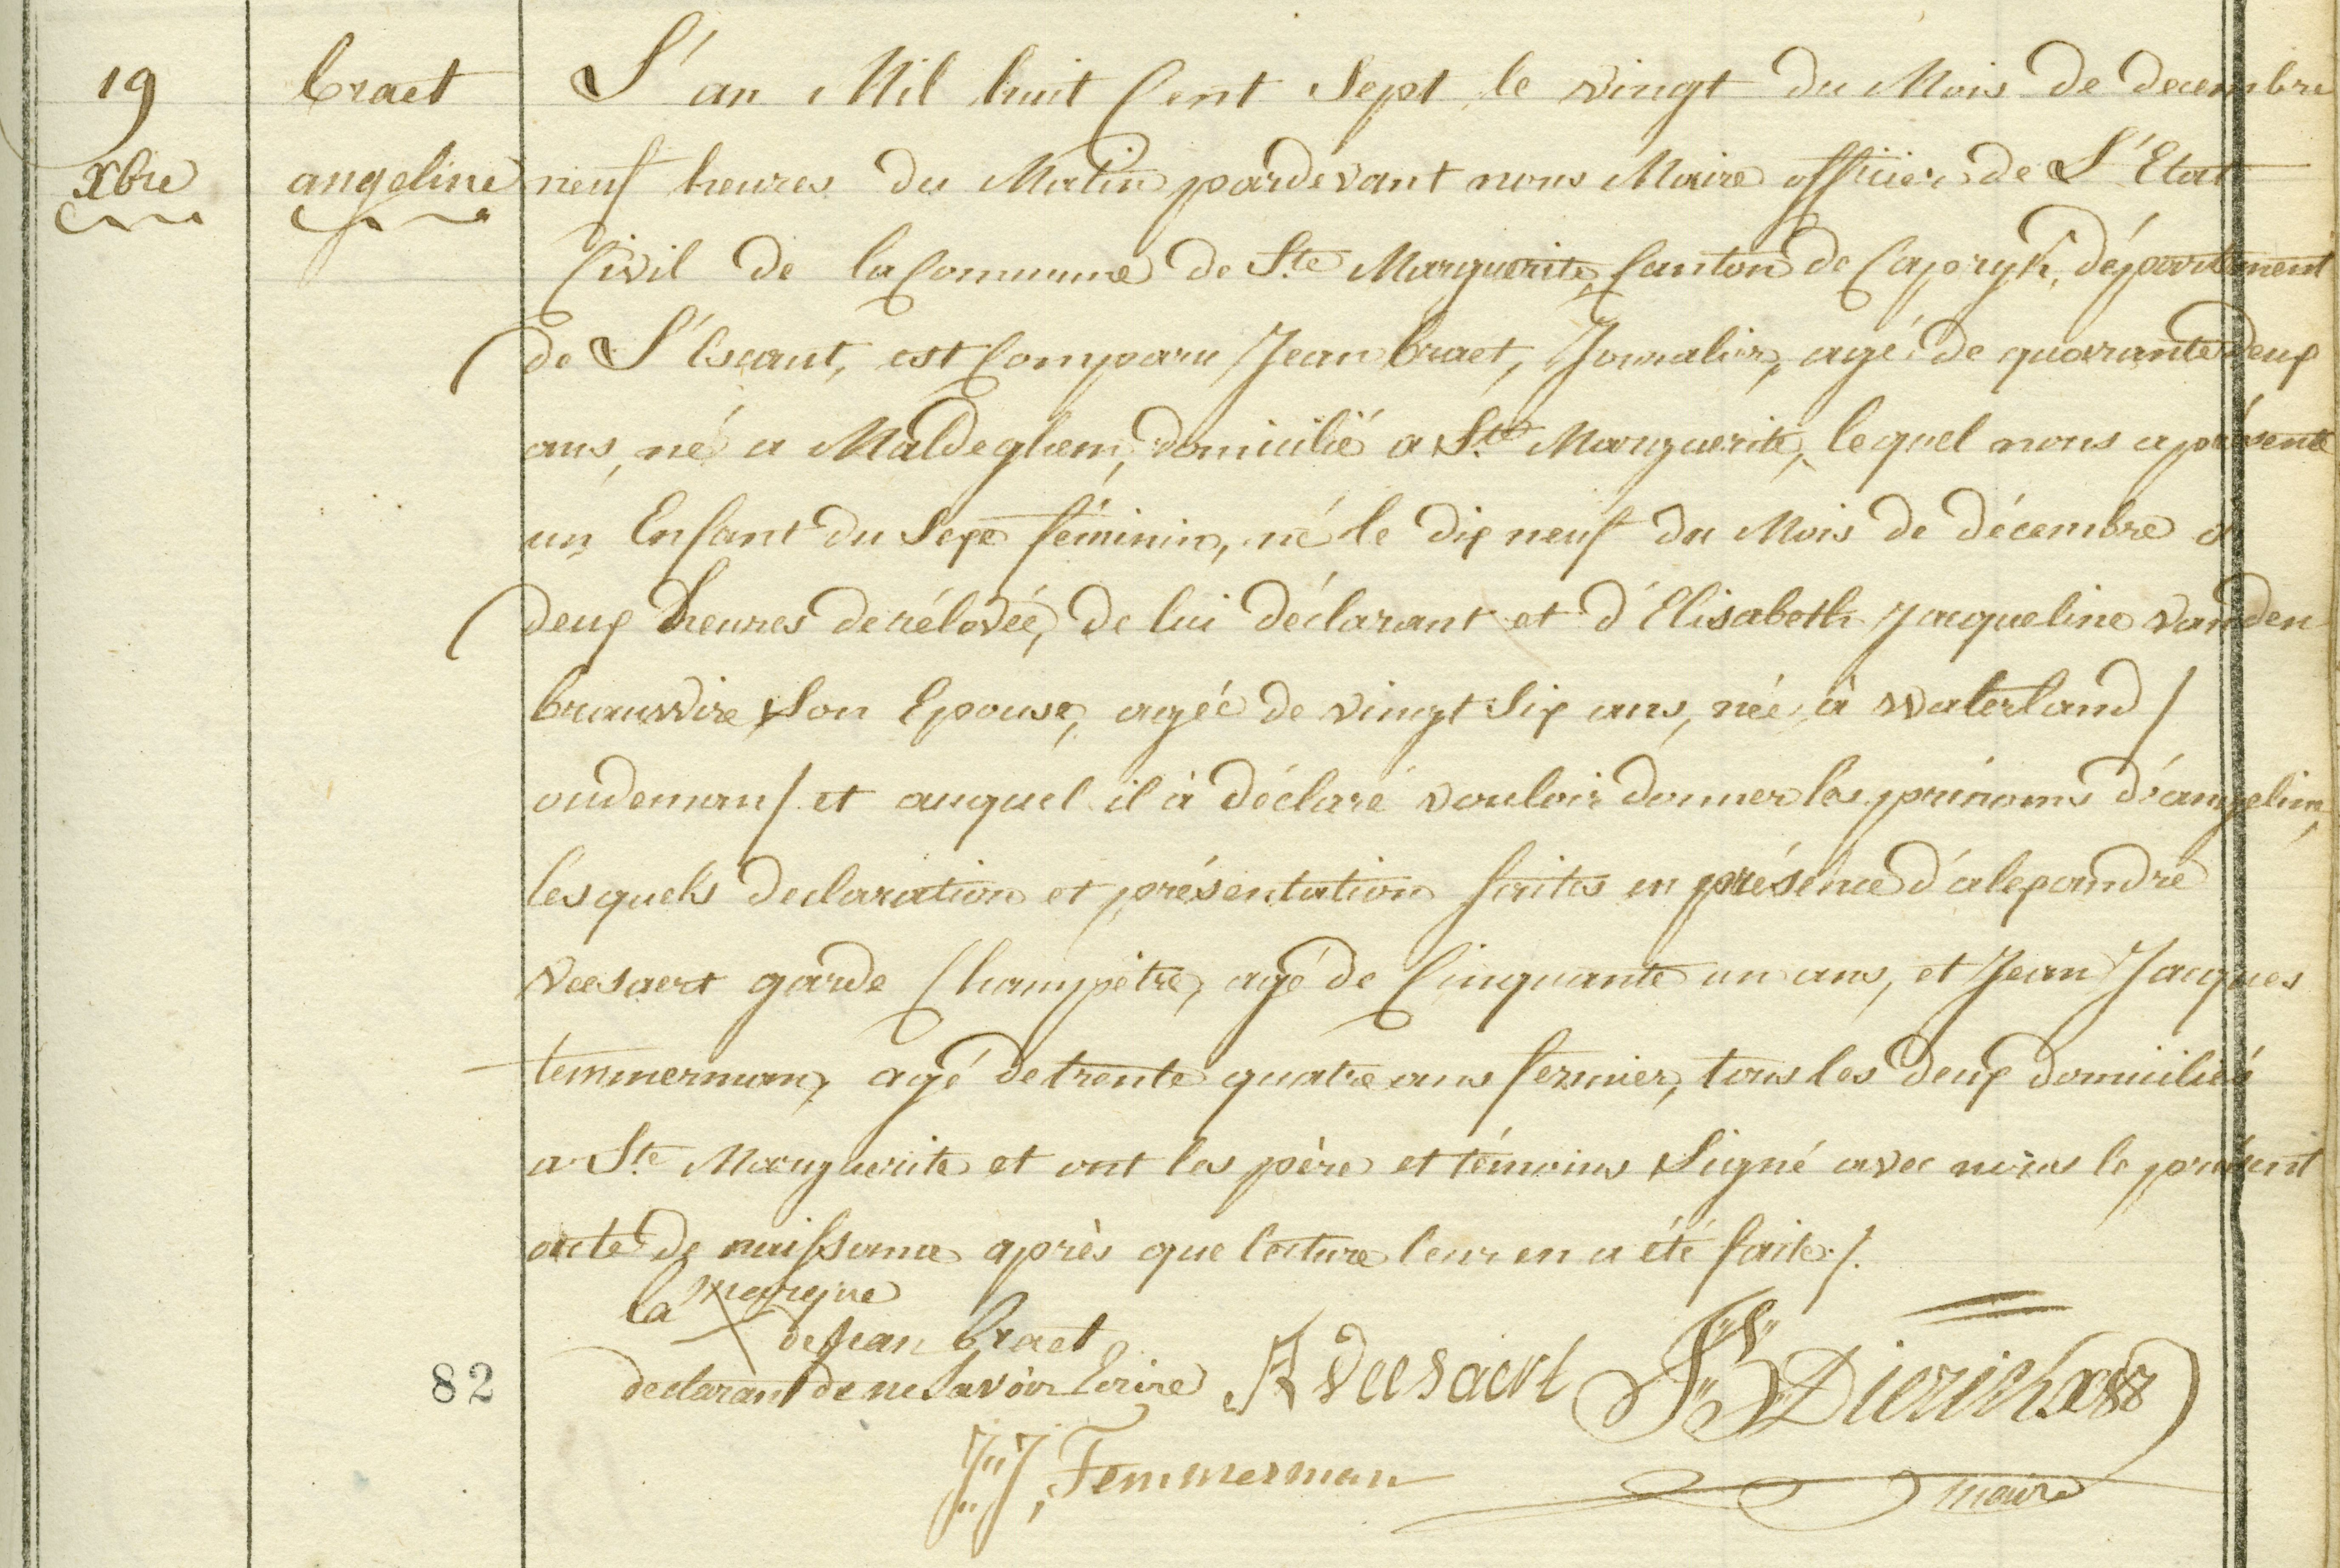 19 xbre
braet angeline
L'an Mil huit Cent Sept le vingt du Mois de decembre
neuf heures du Matin pardevant nous Maire officier de L'Etat
Civil de la Commune de Ste Marguerite, Canton de Capryk, département
de L'Escaut, est Comparu Jean braet, Journalier, agé de quarante deux
ans, né a Maldeghem, domicilié a Ste Marguerite, lequel nous a présenté
un Enfant du Sexe féminin, né le dix neuf du Mois de décembre a
deux heures de rélévée, de lui déclarant et d'Elisabeth Jacqueline vanden
Son Epouse, agée de vingt Six ans, née à waterland /
oudeman / et auquel il à déclaré vouloir donner les prénoms d'angeline,
lesquels declaration et présentation faites en présence d'alexandre
veesaert garde Champètre, agé de Cinquante un ans, et Jean Jacques
temmerman, agé de trente quatre ans fermier, tous les deux domiciliés
a Ste Marguerite et ont les père et témoins Signé avec nous le présent
acte de naissance après que lecture leur en a été faite /.
la X marque
de Jean braet
declarant de ne Savoir Ecrire A Veesaert Dierickx
82
J: J: Temmerman
maire